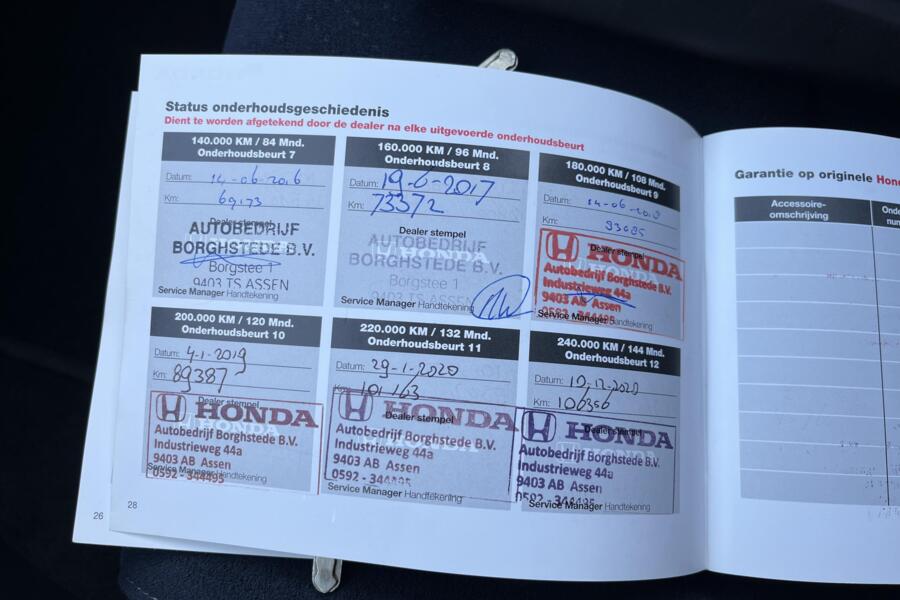 Status onderhoudsgeschiedenis
Dient te worden afgetekend door de dealer na elke uitgevoerde onderhoudsbeurt
140.000 KM / 84 Mnd.
Onderhoudsbeurt 7
Datum: 14-06-2016
Km: 69173
Dealer stempel
AUTOBEDRIJF
BORGHSTEDE B.V.
Borgstee 1
9403 TS ASSEN
Service Manager Handtekening
160.000 KM / 96 Mnd.
Onderhoudsbeurt 8
Datum: 19-6-2017
Km: 73372
Dealer stempel
AUTOBEDRIJF
BORGHSTEDE B.V.
Borgstee 1
9403 TS ASSEN
Service Manager Handtekening
180.000 KM / 108 Mnd.
Onderhoudsbeurt 9
Datum: 14-06-2018
Km:
Dealer stempel
HONDA
Autobedrijf Borghstede B.V.
Industrieweg 44a
9403 AB Assen
0592 - 344495
Service Manager Handtekening
200.000 KM / 120 Mnd.
Onderhoudsbeurt 10
Datum: 4-1-2019
Km: 89387
Dealer stempel
HONDA
Autobedrijf Borghstede B.V.
Industrieweg 44a
9403 AB Assen
0592 - 344495
Service Manager Handtekening
220.000 KM / 132 Mnd.
Onderhoudsbeurt 11
Datum: 29-1-2020
Km: 101163
Dealer stempel
HONDA
Autobedrijf Borghstede B.V.
Industrieweg 44a
9403 AB Assen
0592 - 344495
Service Manager Handtekening
240.000 KM / 144 Mnd.
Onderhoudsbeurt 12
Datum: 17-12-2020
Km: 106356
Dealer stempel
HONDA
Autobedrijf Borghstede B.V.
Industrieweg 44a
9403 AB Assen
0592 - 344495
Service Manager Handtekening
28
26
Garantie op originele Hon
Accessoire-
omschrijving
Onde
num